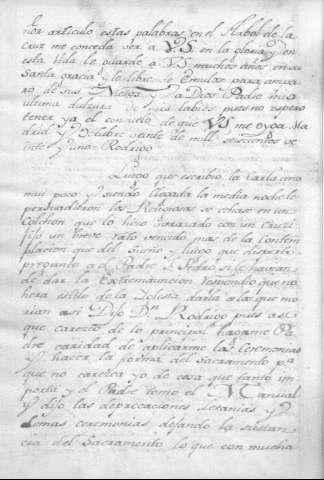 por articulo estas palabras en el Arbol de la
Cruz me conceda ver a V.S. en la gloria, y en
esta Vida le guarde a V.S. muchos años en su
Santa gracia y le libre de Emulos para ampa
ro de sus Nietos a Dios Padre mio
ultima dulzura de mis labios pues no espero
tener ya el consuelo de que V.S. me oyga. Ma
drid y Octubre veinte de mill seiscientos ve
inte y uno. Rodrigo
Luego que escribio la carta como
mui poco y siendo llegada la media noche le
persuadieron los Religiosos se echase en un
Colchon que lo hizo abrazado con un Cruzi
fijo un breve rato vencido mas de la Contem
placion que del Sueño y luego que desperto
pregunto a el Padre F. Pedro si le havian
de dar la Extremauncion respondio que no
hera estilo de la Iglesia darla a los que mo
rian asi Dijo Dn. Rodrigo pues asi
que carezco de lo principal hagame Pa
dre caridad de aplicarme las Ceremonias
y hacer la forma del Sacramento pa.
que no carezca yo de cosa que tanto im
porta y el Padre tomo el Manual
y dijo las deprecaciones Letanias y
demas ceremonias dejando la substan
cia del Sacramento lo que con mucha